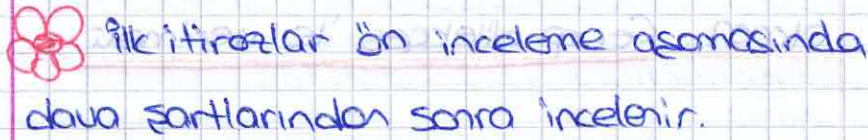 İlk itirazlar ön inceleme aşamasında
dava şartlarından sonra incelenir.